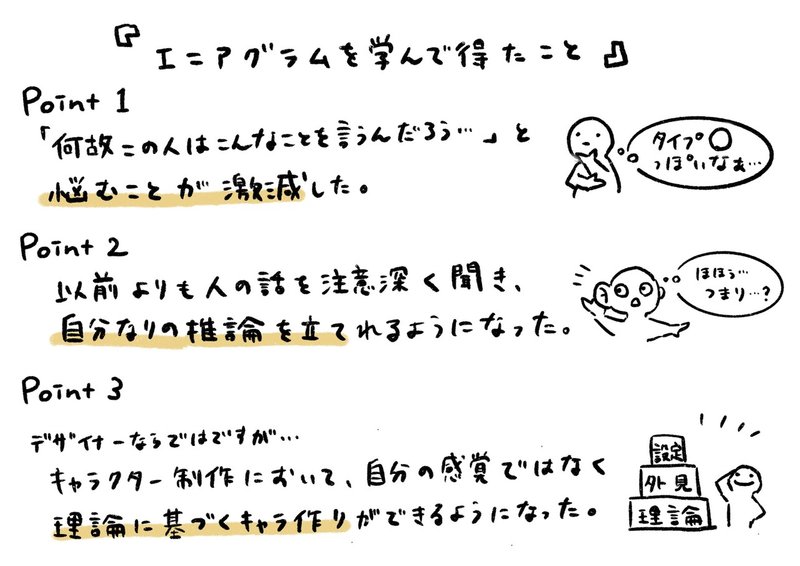 『エニアグラムを学んで得たこと』
Point 1
「何故この人はこんなことを言うんだろう…」と
悩むことが激減した。
タイプ〇
っぽいなぁ…
Point 2
以前よりも人の話を注意深く聞き、
自分なりの推論を立てれるようになった。
ほほぅ…
つまり…?
Point 3
デザイナーならではですが…
キャラクター制作において、自分の感覚ではなく
理論に基づくキャラ作りができるようになった。
設定
外見
理論